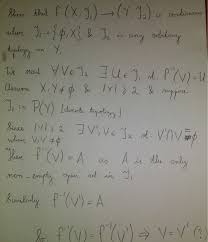 Show that f: (X, J₁) → (Y, J₂) is continuous
where J₁ = {ϕ, X} & J₂ is any arbitrary
topology on Y.
We need ∀V∈J₂ ∃U∈J₁ s.t. f⁻¹(V)=U
Assume X,Y≠ϕ & |Y|≥2 & suppose
J₂ = P(Y) [discrete topology]
Since |Y|≥2 ∃V',V∈J₂ s.t. V'∩V=ϕ
where V,V'≠ϕ
Then f⁻¹(V) = A as A is the only
non-empty open set in J₁
Similarly f⁻¹(V') = A
& f⁻¹(V)=f⁻¹(V') ⇒ V=V' (?)